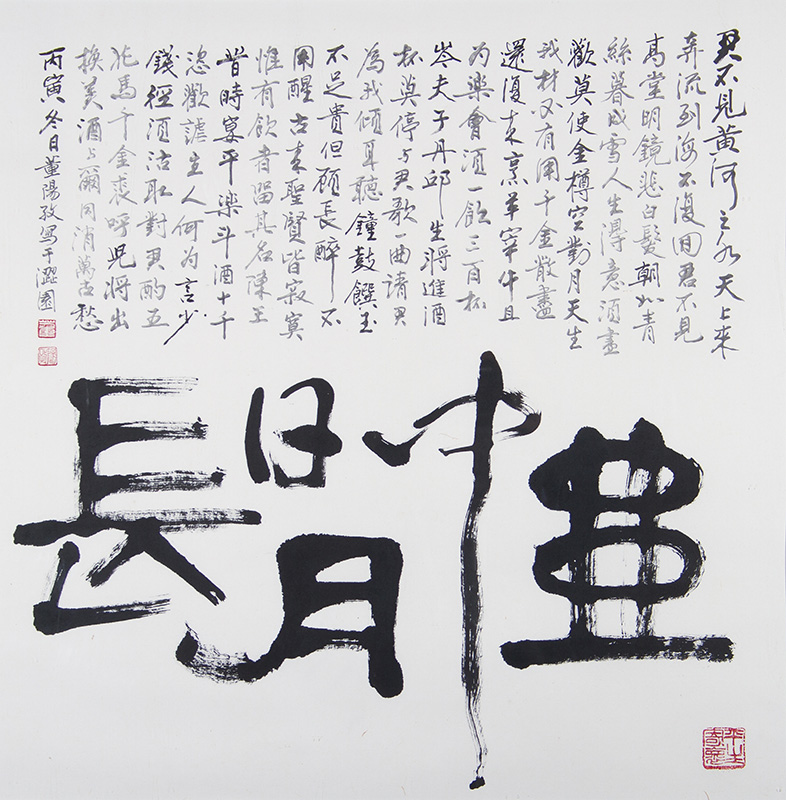 君不見黃河之水天上來
奔流到海不復回君不見
高堂明鏡悲白髮朝如青
絲暮成雪人生得意須盡
歡莫使金樽空對月天生
我材必有用千金散盡
還復來烹羊宰牛且
為樂會須一飲三百杯
岑夫子丹邱生將進酒
杯莫停与君歌一曲請君
為我傾耳聽鐘鼓饌玉
不足貴但願長醉不
用醒古來聖賢皆寂寞
惟有飲者留其名陳王
昔時宴平樂斗酒十千
恣歡謔主人何為言少
錢徑須沽取對君酌五
花馬千金裘呼兒將出
換美酒与爾同消萬古愁
丙寅冬日董陽孜寫于澀園
壺中日月長